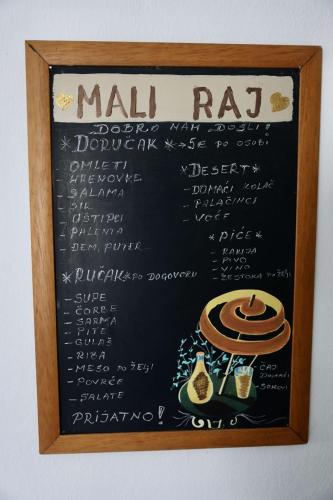 MALI RAJ
DOBRO NAM DOŠLI!
*DORUČAK *→ 5€ PO OSOBI
- OMLETI
- HRENOVKE
- SALAMA
- SIR
- UŠTIPCI
- PALENTA
- DEM, PUTER
*DESERT*
- DOMAĆI KOLAČ
- PALAČINCI
- VOĆE
*PIĆE*
- RAKIJA
- PIVO
- VINO
- ŽESTOKA PO ŽELJI
- ČAJ
DOMAĆI
- SOKOVI
*RUČAK* PO DOGOVORU
- SUPE
- ČORBE
- SARMA
- PITE
- GULAŠ
- RIBA
- MESO PO ŽELJI
- POVRĆE
- SALATE
PRIJATNO!